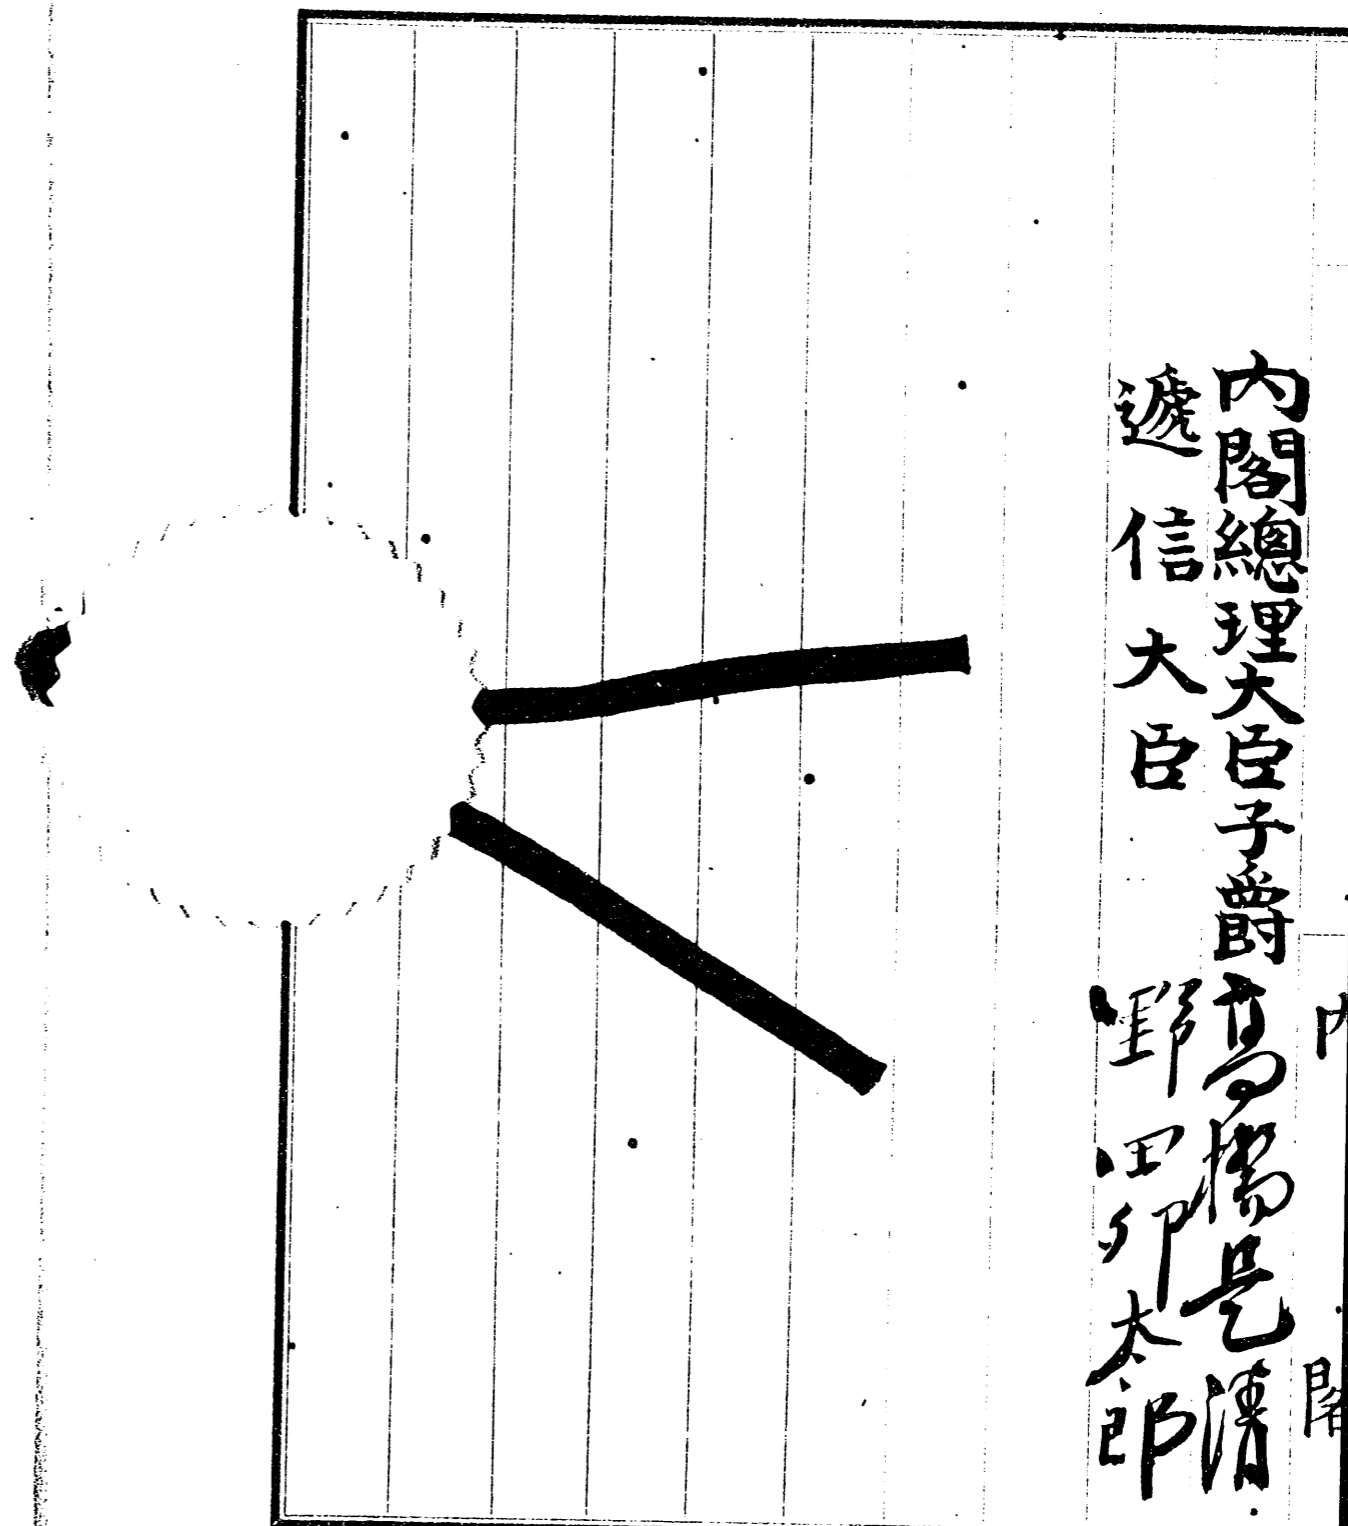 内閣
内閣總理大臣子爵高橋是清
遞信大臣 野田卯太郎